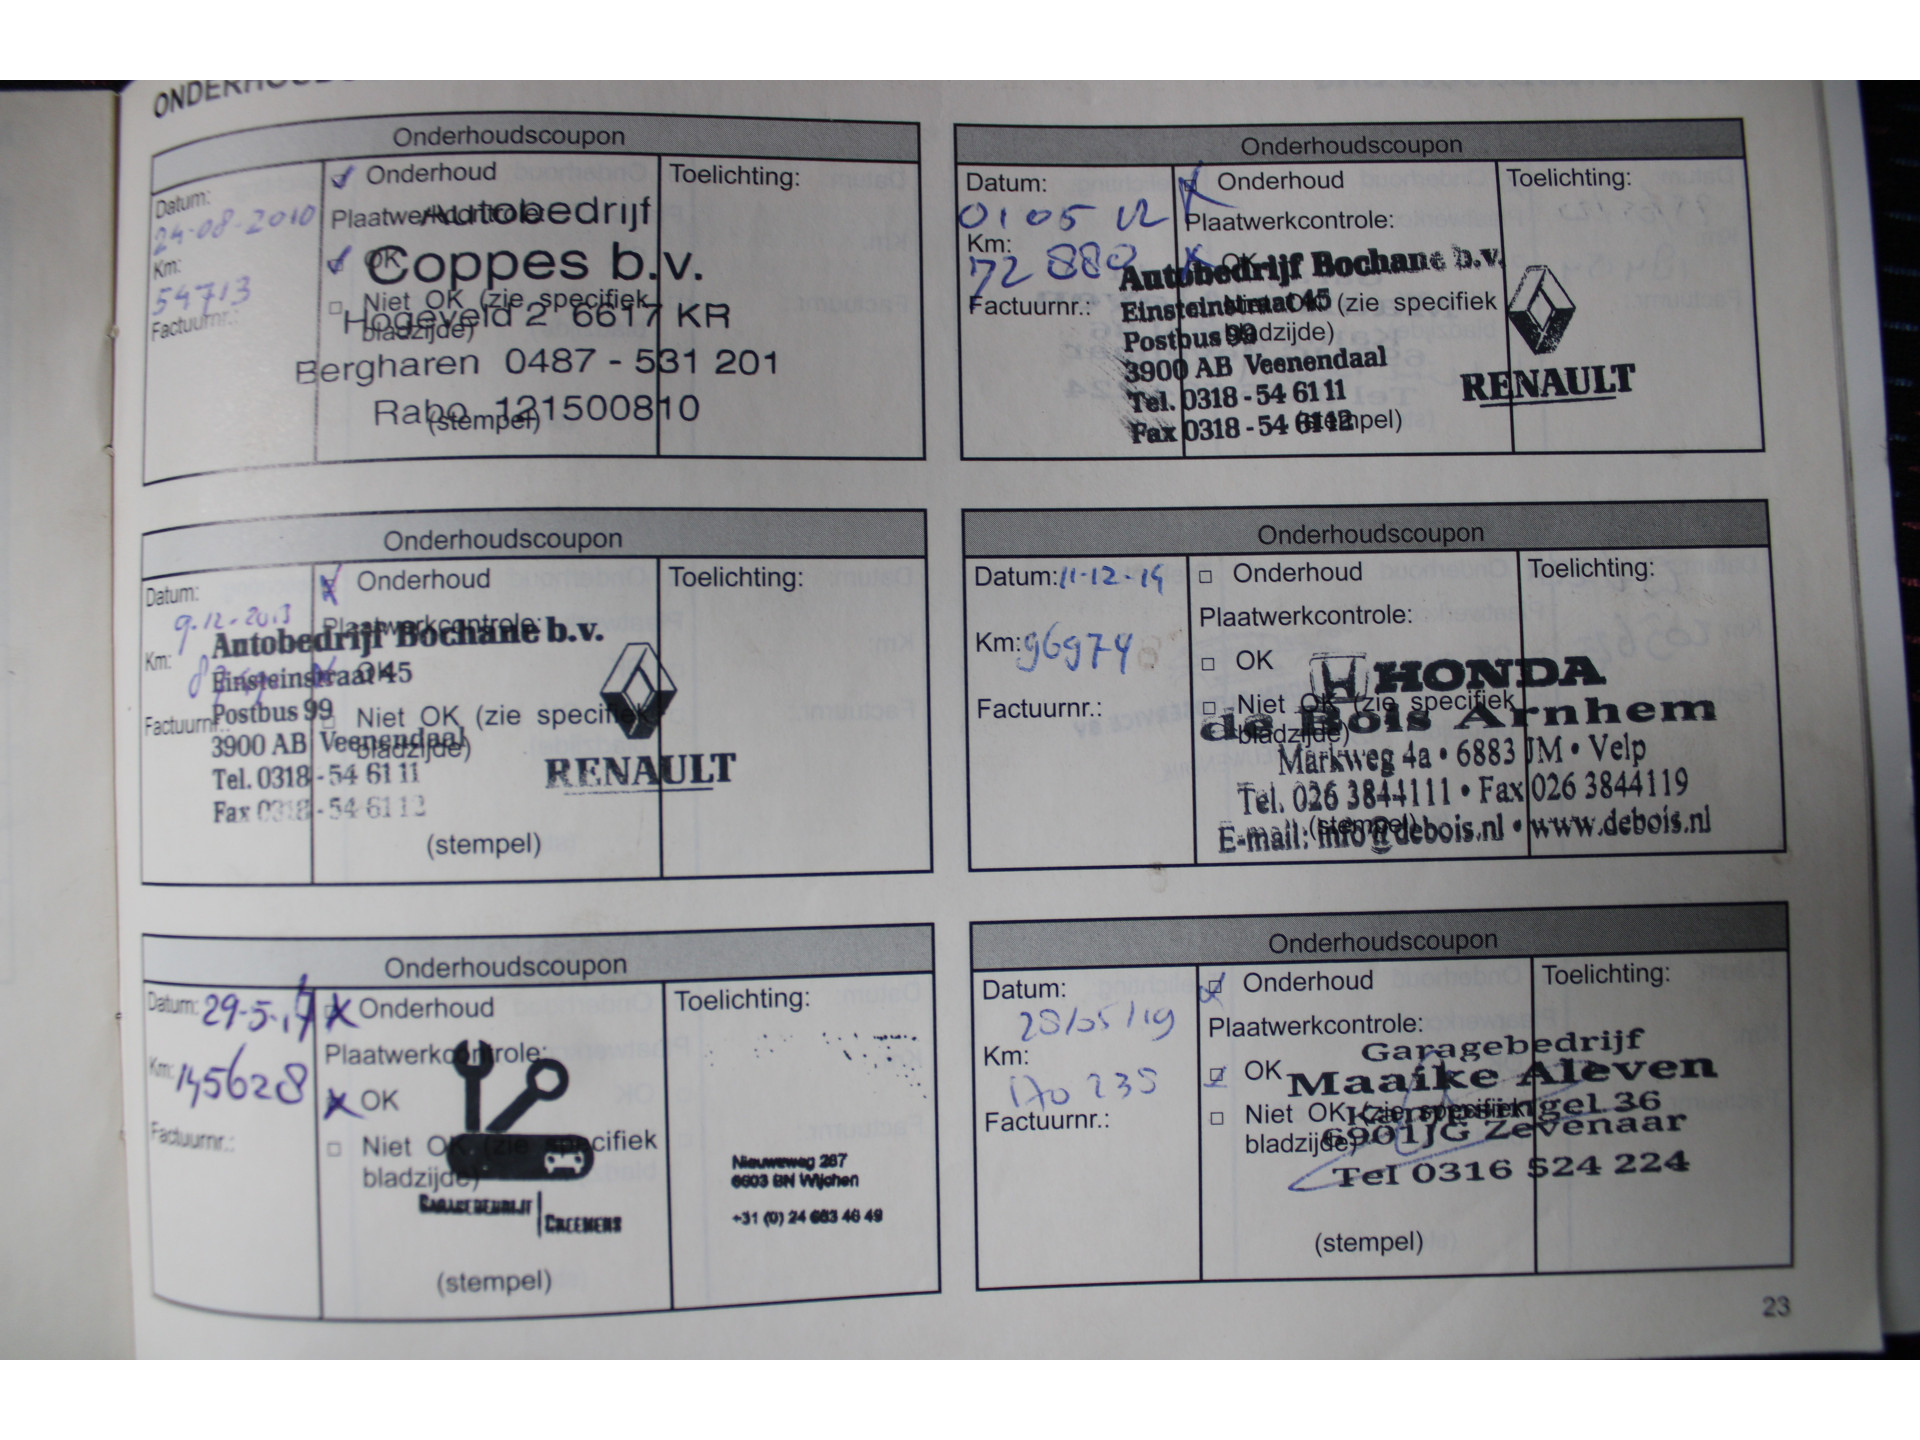 Onderhoudscoupon
Datum:
24-08-2010
Km:
54713
Factuurnr.:
Onderhoud
Plaatwerkcontrole:
OK
Niet OK (zie specifiek
bladzijde)
(stempel)
Toelichting:
Autobedrijf
Coppes b.v.
Hogeveld 2 6617 KR
Bergharen 0487 - 531 201
Rabo 121500810
Onderhoudscoupon
Datum:
01 05 12
Km:
72 880
Factuurnr.:
Onderhoud
Plaatwerkcontrole:
OK
Niet OK (zie specifiek
bladzijde)
(stempel)
Toelichting:
Autobedrijf Bochane b.v.
Einsteinstraat 45
Postbus 99
3900 AB Veenendaal
Tel. 0318 - 54 61 11
Fax 0318 - 54 61 12
RENAULT
Onderhoudscoupon
Datum:
9-12-2013
Km:
Factuurnr.:
Onderhoud
Plaatwerkcontrole:
OK
Niet OK (zie specifiek
bladzijde)
(stempel)
Toelichting:
Autobedrijf Bochane b.v.
Einsteinstraat 45
Postbus 99
3900 AB Veenendaal
Tel. 0318 - 54 61 11
Fax 0318 - 54 61 12
RENAULT
Onderhoudscoupon
Datum: 11-12-14
Km: 96974
Factuurnr.:
Onderhoud
Plaatwerkcontrole:
OK
Niet OK (zie specifiek
bladzijde)
(stempel)
Toelichting:
HONDA
de Bois Arnhem
Markweg 4a • 6883 JM • Velp
Tel. 026 3844111 • Fax 026 3844119
E-mail: info@debois.nl • www.debois.nl
Onderhoudscoupon
Datum: 29-5-17
Km: 145628
Factuurnr.:
Onderhoud
Plaatwerkcontrole:
OK
Niet OK (zie specifiek
bladzijde)
(stempel)
Toelichting:
Garagebedrijf
Creemers
Nieuweweg 287
6603 BN Wijchen
+31 (0) 24 663 46 49
Onderhoudscoupon
Datum:
28/05/19
Km:
170 235
Factuurnr.:
Onderhoud
Plaatwerkcontrole:
OK
Niet OK (zie specifiek
bladzijde)
(stempel)
Toelichting:
Garagebedrijf
Maaike Aleven
Kampsingel 36
6901JG Zevenaar
Tel 0316 524 224
23